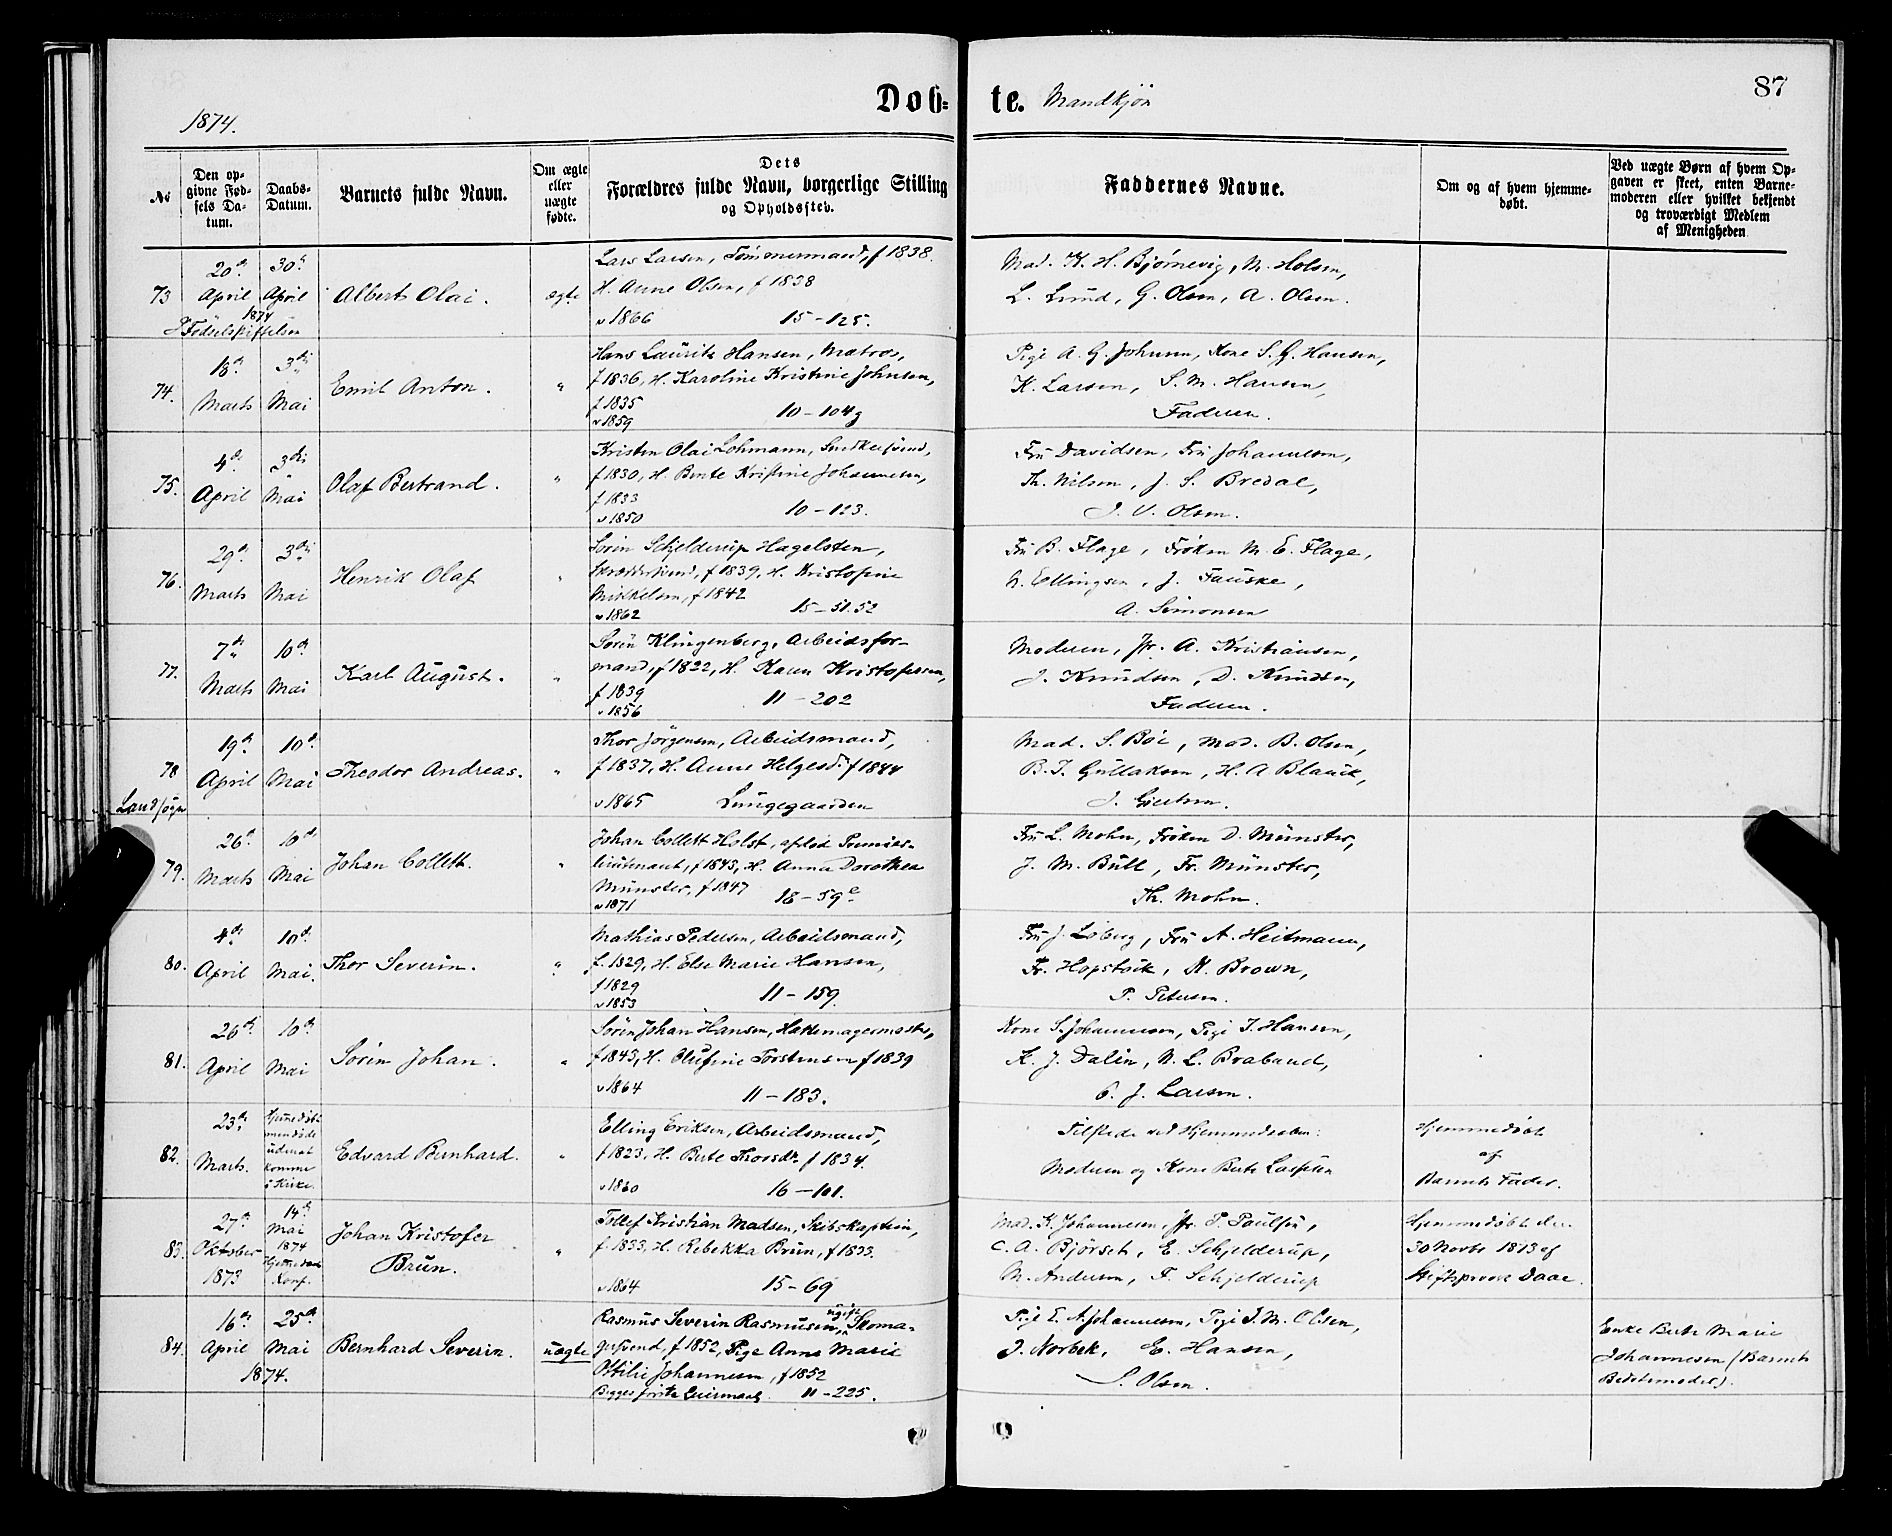 87
Døb- te. Mandkjøn
1874.
No
Den opgivne Fødsels Datum.
Daabs-Datum.
Barnets fulde Navn.
Om ægte eller uægte fødte.
Dets Forældres fulde Navn, borgerlige Stilling og Opholdssted.
Faddernes Navne.
Om og af hvem hjemmedøbt.
Ved uægte Børn af hvem Opgaven er skeet, enten Barnemoderen eller hvilket bekjendt og troværdigt Medlem af Menigheden
73 20de April 30te April 1874 Albert Olai. ægte
Fødselsstiftelsen
Lars Larsen, Tømmermand, f 1838.
H. Anne Olsen, f 1838
v 1866 15-125.
Mad. K. H. Bjørnevig, M. Holsen,
L. Lund, G. Olsen, A. Olsen.
74. 18de Marts 3die Mai Emil Anton. "
Hans Lauritz Hansen, Matros,
f 1836, H. Karoline Kristine Johnsen,
f 1835
v 1859 10-104
Pige A. G. Johnsen, Kone S. G. Hansen,
K. Larsen, S. M. Hansen,
Faderen.
75. 4de April 3die Mai Olaf Bertrand. "
Kristen Olai Lohmann, Snedkersvend,
f 1830, H. Bente Kristine Johannesen,
f 1833
v 1850 10-123.
Fru Davidsen, Fru Johannesen,
Th. Nilsen, J. S. Bredal,
J. V. Olsen.
76. 29de Marts 3die Mai Henrik Olaf "
Sørin Schjelderup Hagelsten,
Skræddersvend, f 1839, H. Kristofine
Mikkelsen, f 1842
v 1862 15-51.52
Fru B. Flage, Frøken M. E. Flage,
N. Ellingsen, J. Fauske,
A. Simonsen
77. 7de Marts 10de Mai Karl August. "
Sørin Klingenberg, Arbeidsfor-
mand, f 1822, H. Karen Kristofersen,
f 1839
v 1856 11-202
Moderen, Jfr. A. Kristiansen,
J. Knudsen, D. Knudsen,
Faderen.
78 19de April 10de Mai Theodor Andreas. "
Landsogn
Thor Jörgensen, Arbeidsmand,
f 1837, H. Anne Helgesd. f 1844
v 1865 Lungegaarden
Mad. S. Böe, Mad. B. Olsen,
B. T. Gullaksen, H. A Blauck,
J. Gjertsen.
79. 26de Marts 10de Mai Johan Collett. "
Johan Collett Holst, afsked Premier-
lieutenant, f 1843, H. Anna Dorothea
Münster, f 1847
v 1871 18-59e
Fru L. Mohn, Frøken D. Münster,
J. M. Bull, Fr. Münster,
Th. Mohn.
80. 4de April 10de Mai. Thor Severin. "
Mathias Pedersen, Arbeidsmand,
f. 1829, H. Else Marie Hansen,
f 1829
v 1853 11-159.
Fru J. Loberg, Fru A. Heitmann,
Fr. Hopstock, N. Brown,
P. Petersen.
81. 26de April 10de Mai Sørin Johan. "
Sørin Johan Hansen, Hattemagermester,
f 1843, H. Olufine Torstensen f 1839
v 1864 11-183.
Kone S. Johannesen, Pige I. Hansen,
K. J. Dalin, N. L. Braband,
C. J. Larsen.
82. 23de Marts. Hjemmedøbt men døde uden at komme i Kirke. Edvard Bernhard. "
Elling Eriksen, Arbeidsmand,
f 1823, H. Berte Thorsdtr. f 1834.
v 1860 16-101.
Tilstede ved Hjemmedaaben:
Moderen og Kone Berte Larsen
Hjemmedøbt
af
Barnets Fader.
83. 27de Oktober 1873 14de Mai 1874 Hjemmedaab Konf. Johan Kristofer Brun. "
Tollef Kristian Madsen, Skibskaptein,
f. 1833, H. Rebekka Brun, f 1833.
v 1864 15-69
Mad. K. Johannesen, Jfr. P. Poulsen,
C. A. Bjørset, E. Schjelderup,
M. Andersen, F. Schjelderup
Hjemmedøbt den
30 Novbr 1873 af
Stiftsprovst Daae.
84. 16de April 25de Mai 1874. Bernhard Severin. uægte
Rasmus Severin Rasmussen, ugift Skoma-
gersvend, f 1852, Pige Anne Marie
Ottilie Johannesen, f 1852
Begges første Leiermaal. 11-225.
Pige E. A. Johannesen, Pige I. M. Olsen,
J. Norbek, E. Hansen,
S. Olsen.
Enke Berte Marie
Johannesen (Barnets
Bedstemoder).